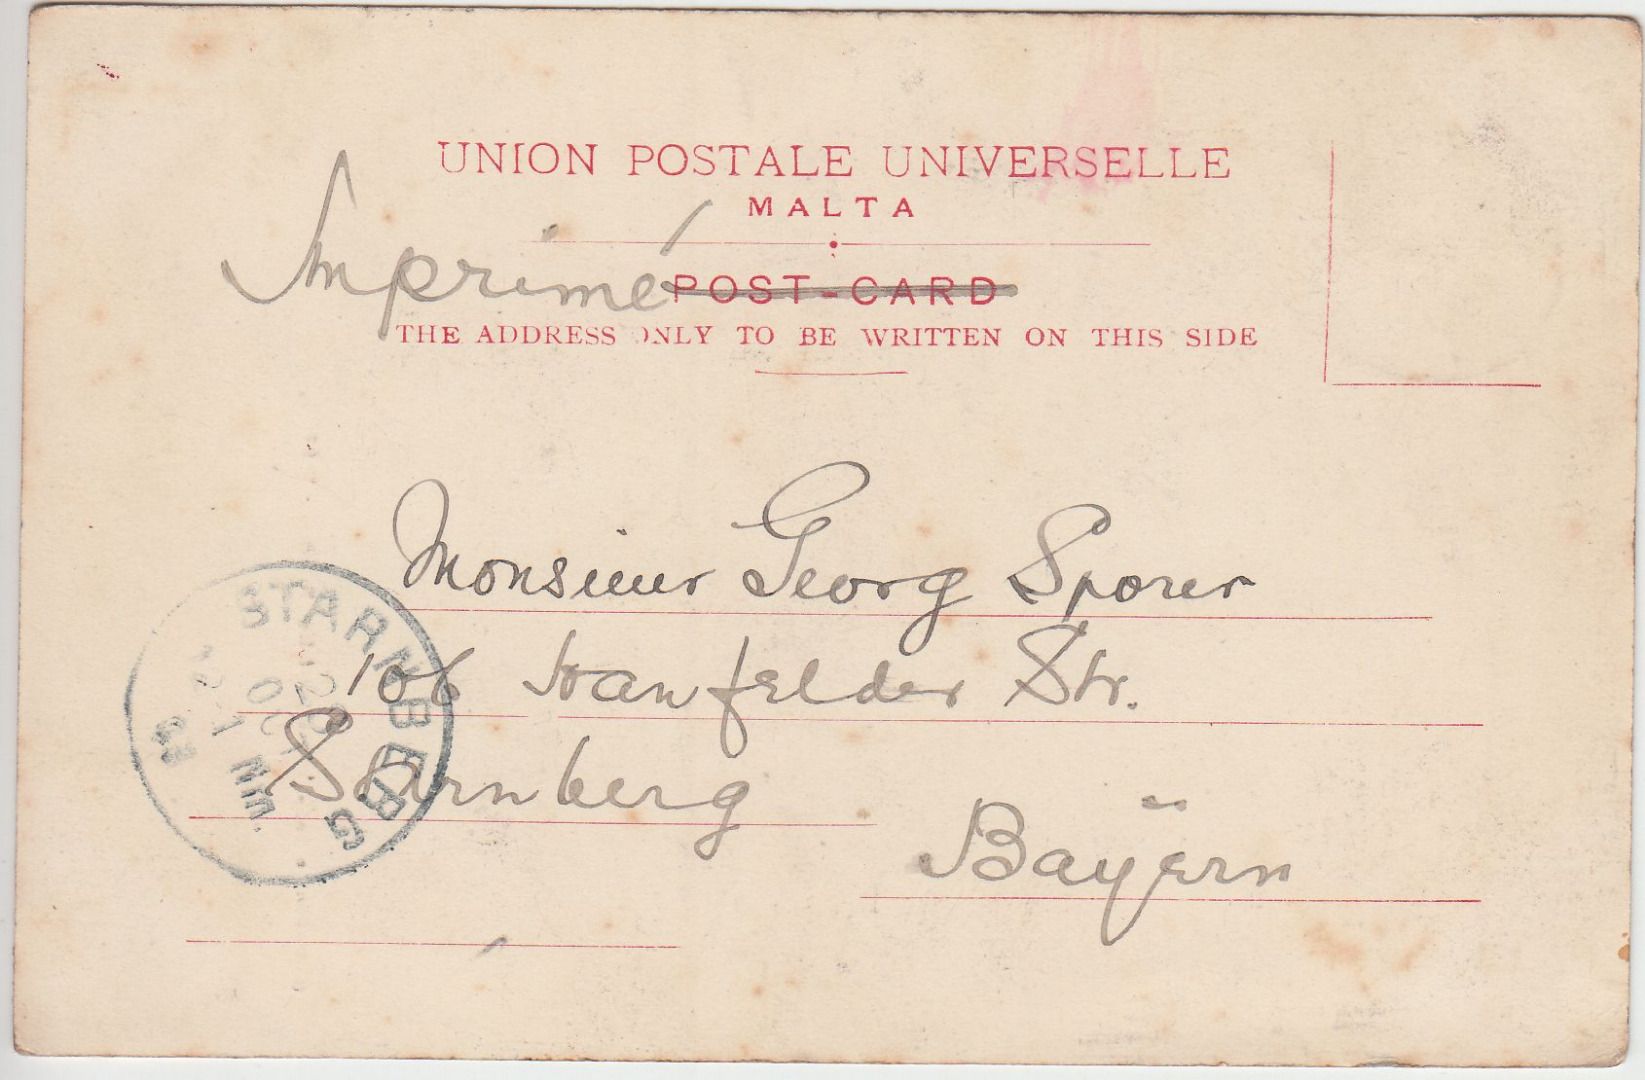 UNION POSTALE UNIVERSELLE
MALTA
Imprimé POST-CARD
THE ADDRESS ONLY TO BE WRITTEN ON THIS SIDE
Monsieur Georg Sporer
106 Hanfelder Str.
Starnberg
Bayern
STARNBERG